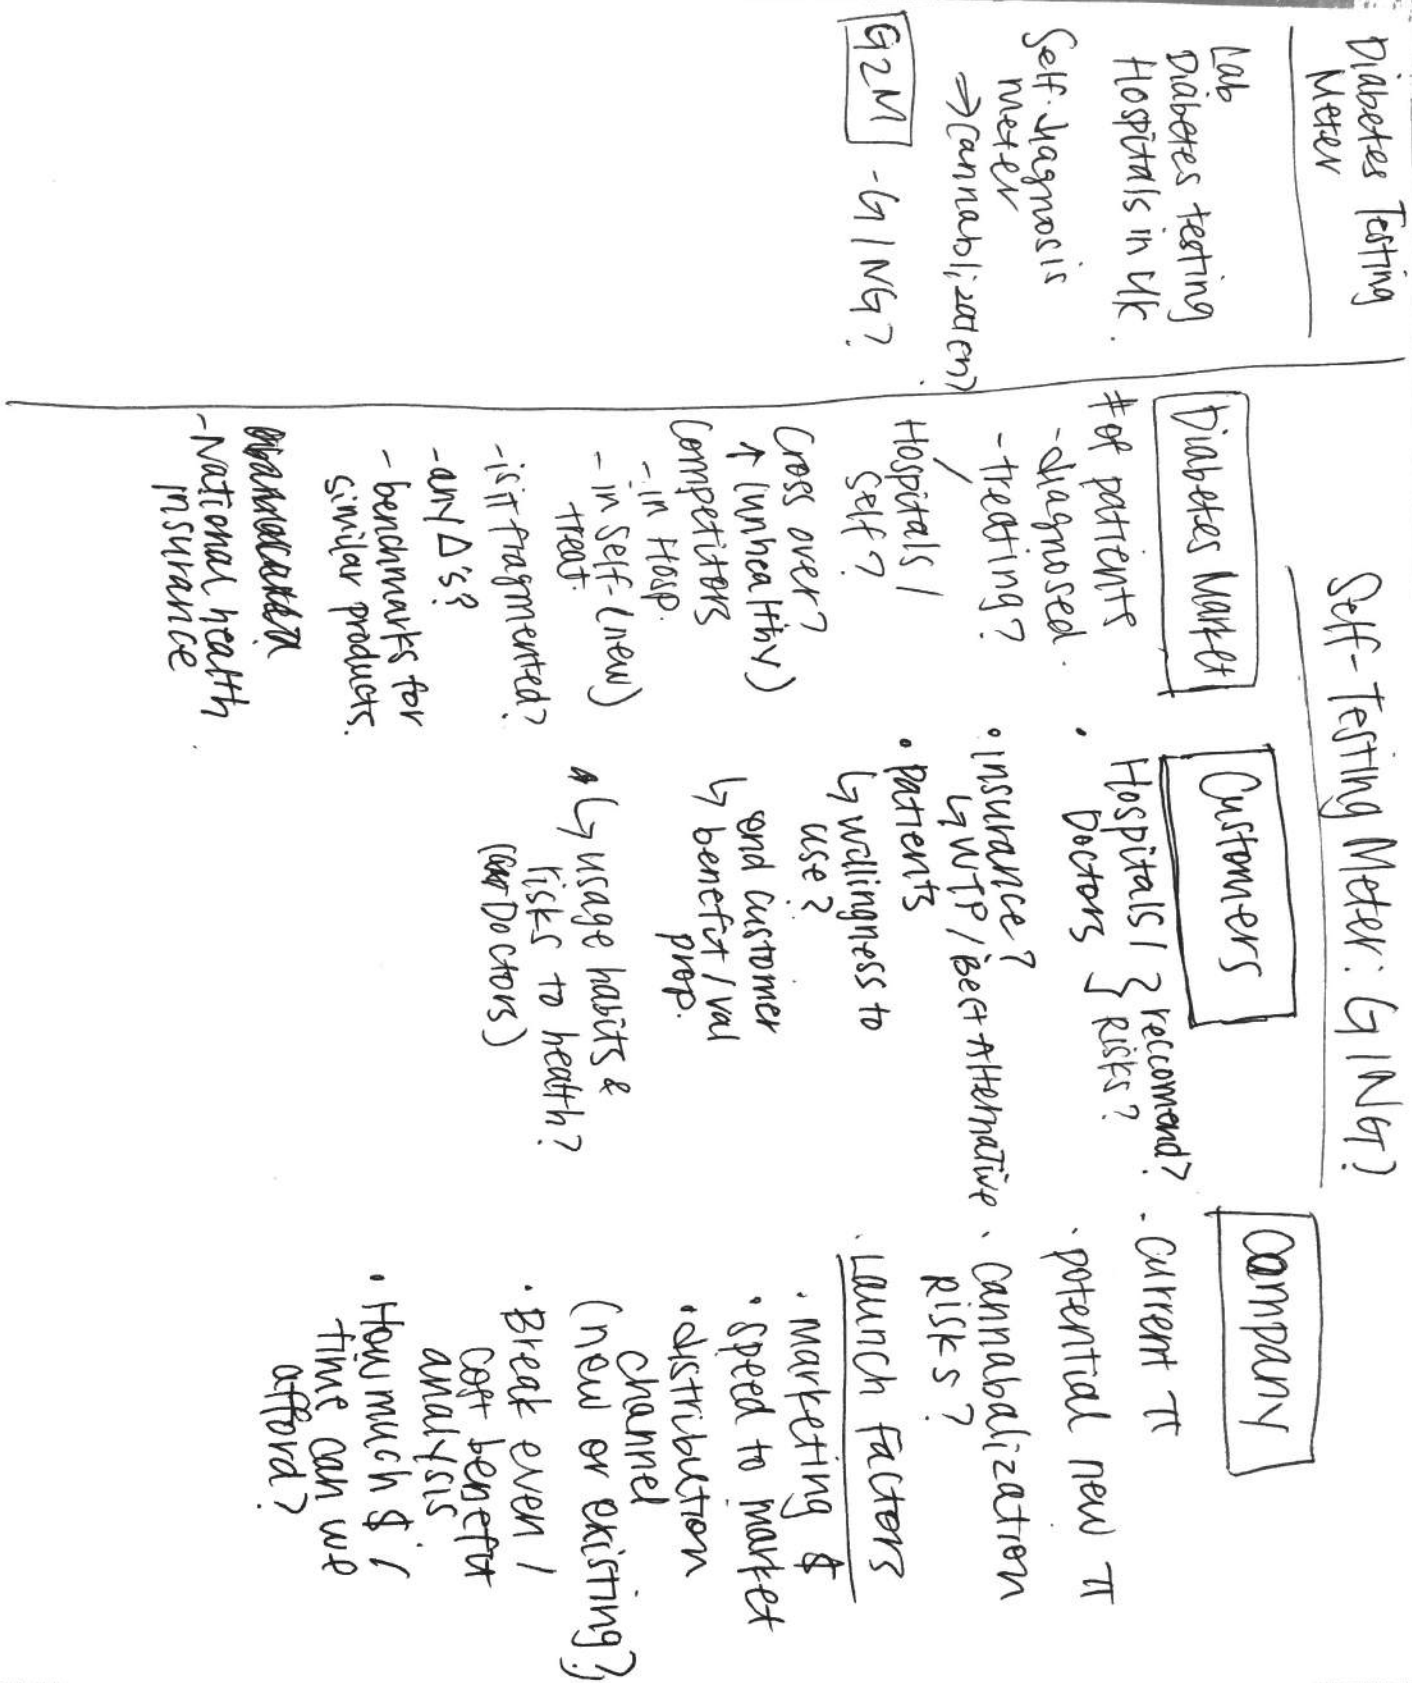 Diabetes Testing
Meter
Lab
Diabetes testing
Hospitals in UK.
Self-diagnosis
meter
→ (cannablization)
G2M - G/NG?
Self-Testing Meter: G/NG?
Diabetes Market
# of patients
- diagnosed.
- treating?
Hospitals /
self?
Cross over?
↑ (unhealthy)
Competitors
- in Hosp.
- in self- (new)
treat.
- is it fragmented?
- any Δ's?
- benchmarks for
similar products.
- National health
insurance
Customers
• Hospitals / } reccomend?
Doctors } Risks?
• insurance?
↳ WTP / Best Alternative
• patients
↳ willingness to
use?
end customer
↳ benefit / val
prop.
↳ usage habits &
risks to health?
(Doctors)
Company
• current π
• potential new π
• cannabalization
risks?
• Launch Factors
• marketing $
• speed to market
• distribution
channel
(new or existing?)
• Break even /
cost benefit
analysis
• How much $ /
time can we
afford?